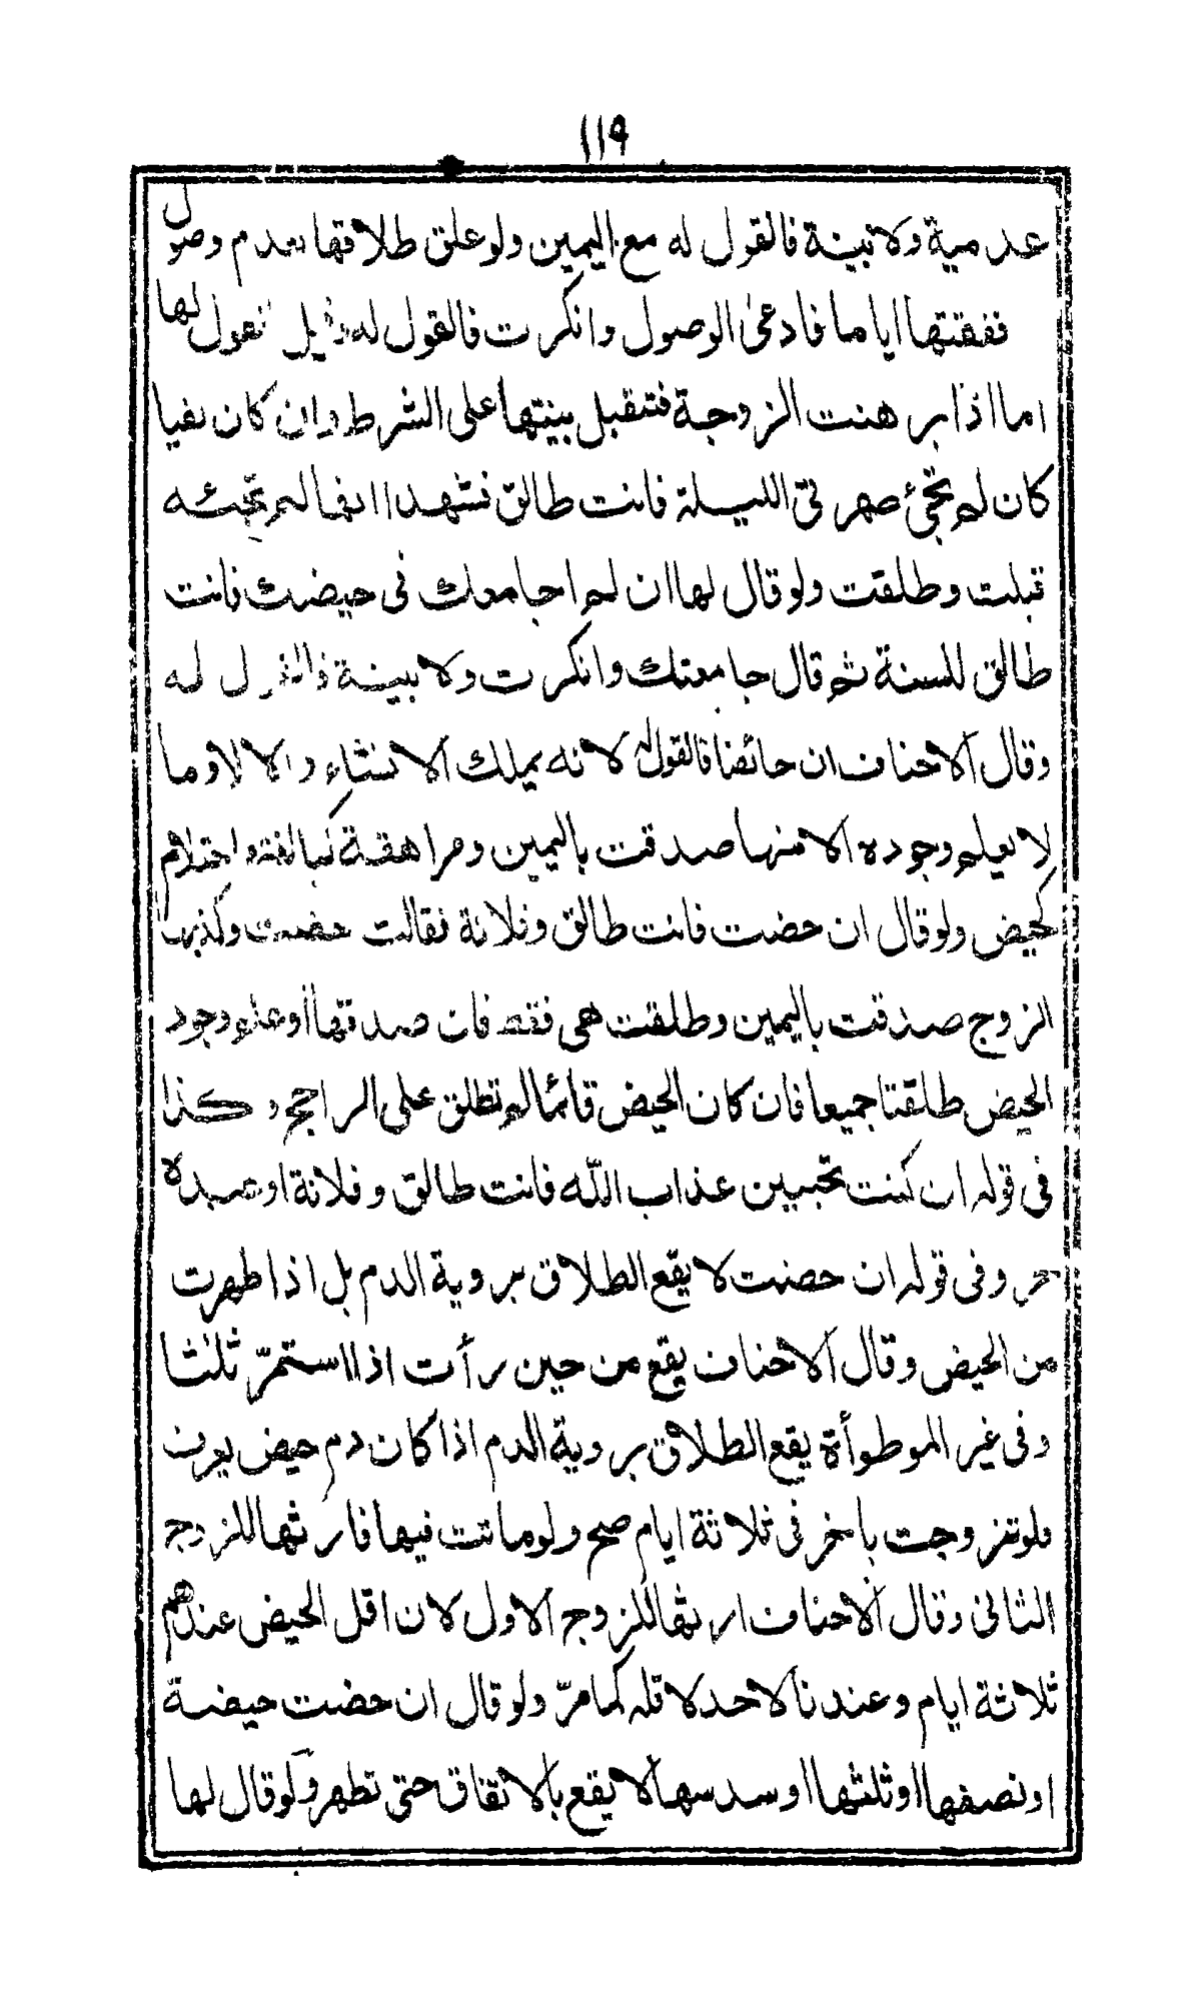 ١١٩
عدمية ولا بينة فالقول له مع اليمين ولو علق طلاقها بعدم وصول
نفقتها اياما فادعى الوصول وانكرت فالقول له وقيل القول لها
اما اذا برهنت الزوجة فتقبل بينتها على الشرط وان كان نفيا
كان لم تجئ صهرتي الليلة فانت طالق فشهدا انها لم تجئه
قبلت وطلقت ولو قال لها ان لم اجامعك في حيضك فانت
طالق للسنة ثم قال جامعتك وانكرت ولا بينة فالقول له
وقال الاحناف ان حائضا فالقول له لانه يملك الانشاء والا لا وما
لا يعلم وجوده الا منها صدقت باليمين ومراهقة كبالغة واحتلام
كحيض ولو قال ان حضت فانت طالق وفلانة فقالت حضت وكذبها
الزوج صدقت باليمين وطلقت هي فقط فان صدقها او علم وجود
الحيض طلقتا جميعا فان كان الحيض قائما لم تطلق على الراجح وكذا
في قوله ان كنت تحبين عذاب الله فانت طالق وفلانة او عبده
حر وفي قوله ان حضت لا يقع الطلاق بروية الدم بل اذا طهرت
من الحيض وقال الاحناف يقع من حين رأت اذا استمرّ ثلثا
وفي غير الموطوأة يقع الطلاق بروية الدم اذا كان دم حيض يعرف
فلو تزوجت باخر في ثلاثة ايام صح ولو ماتت فيها فارثها للزوج
الثاني وقال الاحناف ارثها للزوج الاول لان اقل الحيض عندهم
ثلاثة ايام وعندنا لا حد لاقله كما مرّ ولو قال ان حضت حيضة
او نصفها او ثلثها او سدسها لا يقع بالاتفاق حتى تطهر ولو قال لها